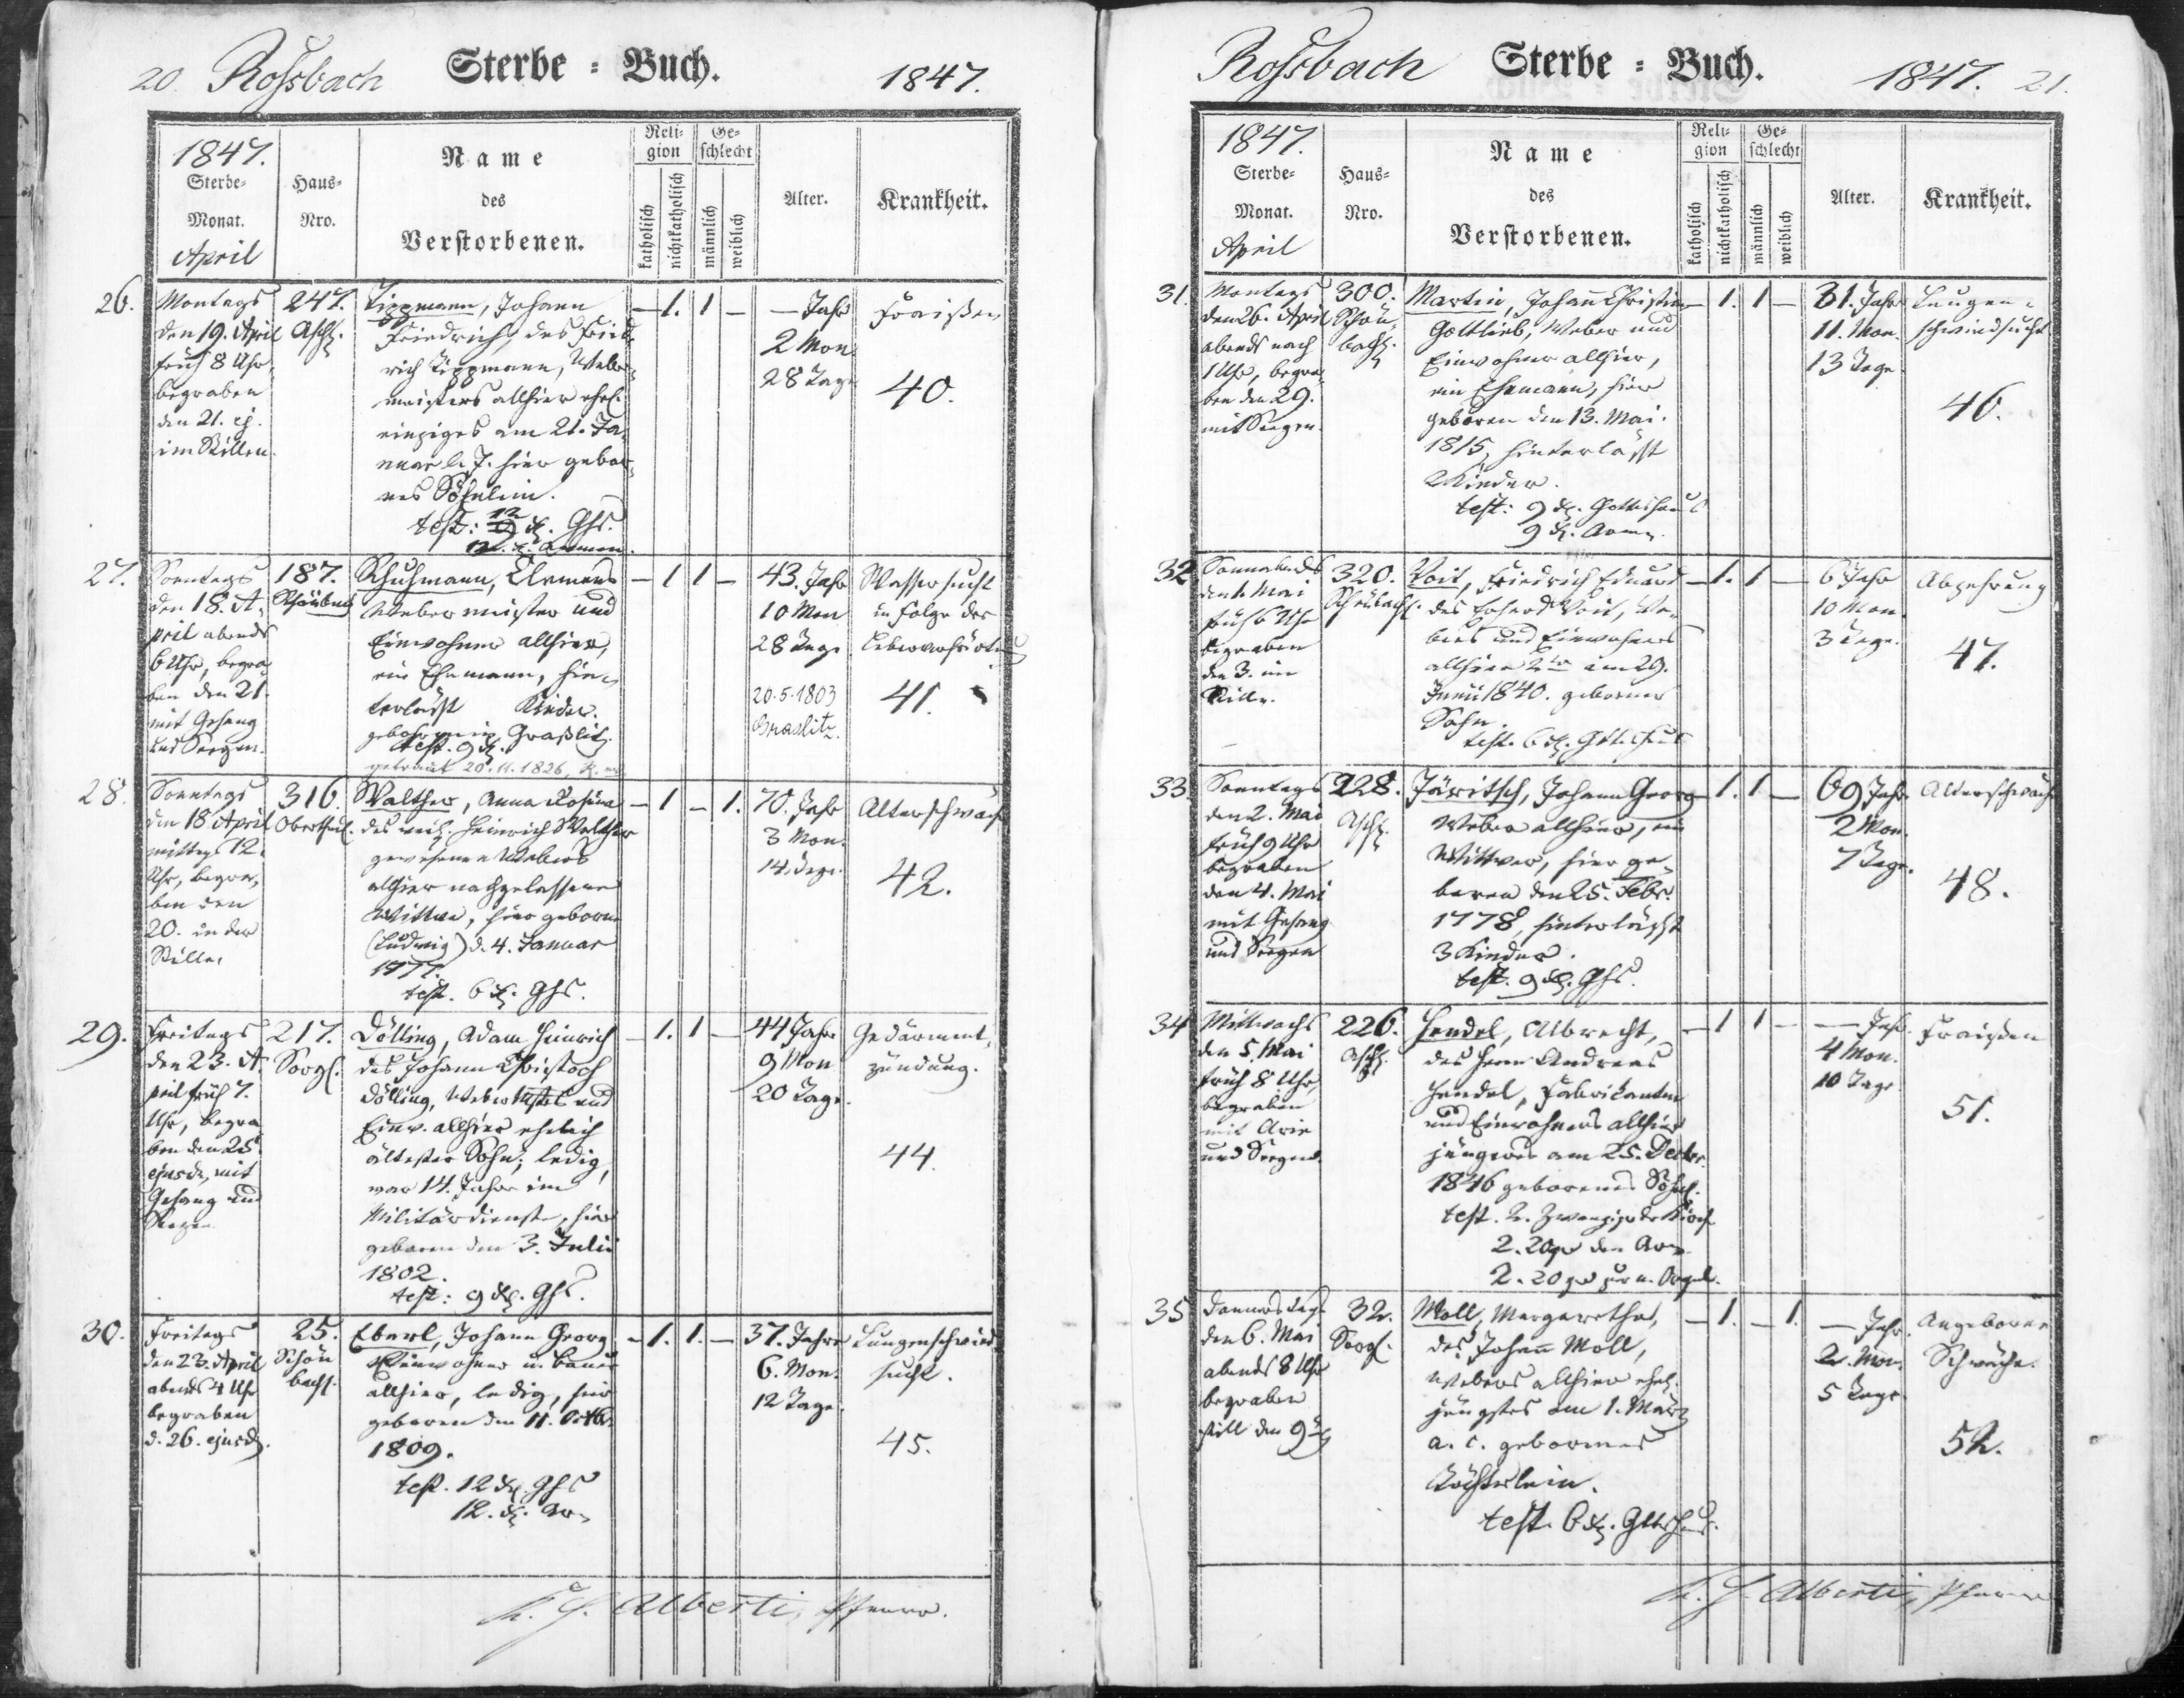 20. Rossbach Sterbe = Buch. 1847.
1847.
Sterbe-
Monat.
April
Haus-
Nro.
Name
des
Verstorbenen.
Reli-
gion
katholisch
nichtkatholisch
Ge-
schlecht
männlich
weiblich
Alter.
Krankheit.
26.
Montags
den 19. April
früh 8 Uhr,
begraben
den 21. ej.
im Stillen.
247.
Asch.
Tippmann, Johann
Friedrich, des Fried-
rich Tippmann, Weber-
meisters allhier ehel.
einziges am 21. Ja-
nuar l. J. hier gebor-
nes Söhnlein.
test: 12 x. Ghs.
12. x. Armen.
— 1. 1 —
— Jahr
2 Mon
28 Tage
Fraißen
40.
27.
Sonntags
den 18. A-
pril abends
6 Uhr, begra-
ben den 21.
mit Gesang
und Seegen.
187.
Schönbach
Schuhmann, Clemens
Webermeister und
Einwohner allhier,
ein Ehemann, hin-
terläßt Kinder.
gebohren in Graßlitz
test. 9 x.
getraut 20.11.1826,
— 1 1 —
43. Jahr
10 Mon
28 Tage
20.5.1803
Graslitz.
Wassersucht
in Folge der
Leberverhärtung
41.
28.
Sonntags
den 18. April
mittags 12.
Uhr, begra-
ben den
20. in der
Stille.
316.
Obertheil.
Walther, Anna Rosina
des weil. Heinrich Walther
gewesenen Webers
allhier nachgelassene
Wittwe, hier geborne
(Ludwig) d. 4. Januar
1777.
test. 6 x. Ghs.
— 1 — 1.
70. Jahr
3 Mon.
14. Tage.
Alterschwäche
42.
29.
Freitags
den 23. A-
pril früh 7.
Uhr, begra-
ben den 25.
ejusd. mit
Gesang und
Seegen.
217.
Sorg.
Dölling, Adam Heinrich
des Johann Christoph
Dölling, Webermstrs und
Einw. allhier ehelich
ältester Sohn; ledig,
war 14. Jahre im
Militärdienste, hier
geboren den 3. Julii
1802.
test: 9 x. Ghs.
— 1. 1 —
44 Jahr
9 Mon
20 Tage.
Gedärment-
zündung.
44.
30.
Freitags
den 23. April
abends 4 Uhr
begraben
d. 26. ejusd.
25.
Schön-
bach.
Eberl, Johann Georg
Einwohner u. Bauer
allhier, ledig, hier
geboren den 11. Octb.
1809.
test. 12 x. Ghs
12. x. Ar.
— 1. 1. —
37. Jahre
6. Mon.
12 Tage.
Lungenschwind-
sucht.
45.
Alberti, Pfarrer.
Rossbach Sterbe = Buch. 1847. 21.
1847.
Sterbe-
Monat.
April
Haus-
Nro.
Name
des
Verstorbenen.
Reli-
gion
katholisch
nichtkatholisch
Ge-
schlecht
männlich
weiblich
Alter.
Krankheit.
31.
Montags
den 26. April
abends nach
1 Uhr, begra-
ben den 29.
mit Seegen.
300.
Schön-
bach.
Martin, Johann Christian
Gottlieb, Weber und
Einwohner allhier,
ein Ehemann, hier
geboren den 13. Mai
1815, hinterläßt
2 Kinder.
test: 9 x. Gotteshaus
9 x. Arme.
— 1. 1 —
31. Jahr
11. Mon.
13 Tage.
Lungen-
schwindsucht
46.
32.
Sonnabends
den 1. Mai
früh 6 Uhr
begraben
den 3. im
Stille.
320.
Schönbach.
Voit, Friedrich Eduard
des Erhard Voit, We-
bers und Einwohners
allhier 2ter am 29.
Junii 1840. geborner
Sohn.
test. 6 x. Gotteshaus
— 1. 1 —
6 Jahr
10 Mon.
3 Tage.
Abzehrung
47.
33.
Sonntags
den 2. Mai
früh 9 Uhr
begraben
den 4. Mai
mit Gesang
und Seegen
228.
Asch.
Järitsch, Johann Georg
Weber allhier, ein
Wittwer, hier ge-
boren den 25. Febr.
1778, hinterläßt
3 Kinder.
test. 9 x. Ghs.
— 1. 1 —
69 Jahr.
2 Mon.
7 Tage.
Alterschwäche
48.
34.
Mittwochs
den 5. Mai
früh 8 Uhr,
begraben
mit Arie
und Seegen.
226.
Asch.
Hendel, Albrecht,
des Herrn Andreas
Hendel, Fabrikanten
und Einwohners allhier
jüngeres am 25. Decbr.
1846 geborenes Söhnl.
test. 2. Zwanziger der Kirche
2. 20ger den Arm.
2. 20ger zur n. Orgel.
— 1 1 —
— Jahr.
4 Mon.
10 Tage
Fraißen
51.
35.
Donnerstags
den 6. Mai
abends 8 Uhr
begraben
still den 9ten
32.
Sorg.
Moll, Margaretha,
des Johann Moll,
Webers allhier ehel.
jüngstes am 1. März
a. c. gebornes
Töchterlein.
test. 6 x. Gotteshaus.
— 1. — 1.
— Jahr.
2. Mon.
5 Tage
Angeborne
Schwäche.
52.
Alberti, Pfarrer